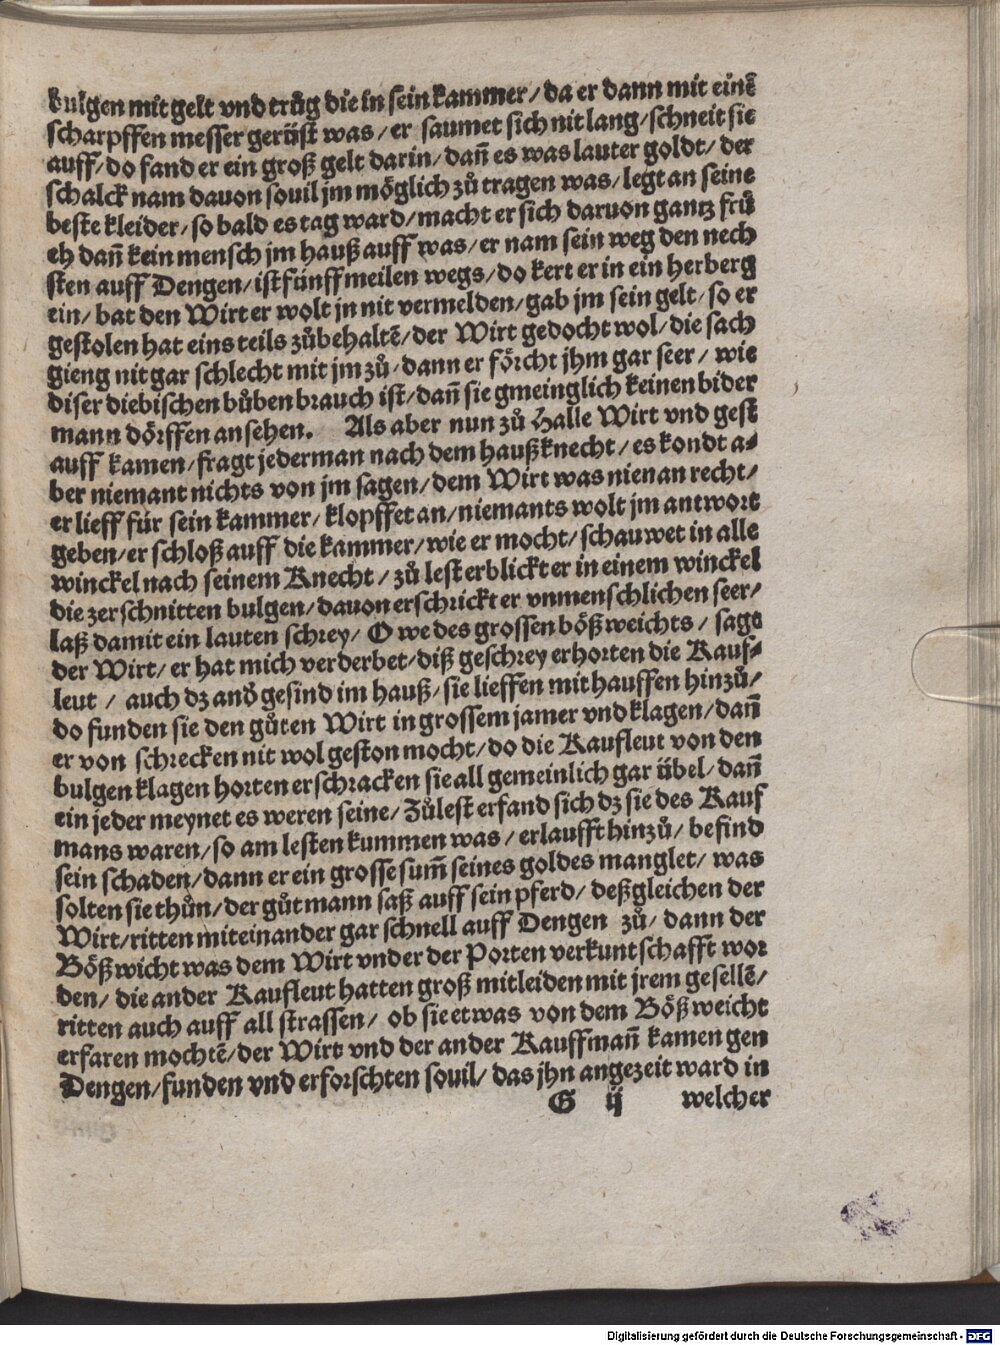 bulgen mit gelt vnd truͦg die in sein kammer / da er dann mit einē
scharpffen messer geruͤst was / er saumet sich nit lang / schneit sie
auff / do fand er ein groß gelt darin / dañ es was lauter goldt / der
schalck nam dauon souil jm moͤglich zuͦ tragen was / legt an seine
beste kleider / so bald es tag ward / macht er sich daruon gantz fruͤ
eh dañ kein mensch jm hauß auff was / er nam sein weg den nech
sten auff Dengen / ist fünff meilen wegs / do kert er in ein herberg
ein / bat den Wirt er wolt jn nit vermelden / gab jm sein gelt / so er
gestolen hat eins teils zuͦbehaltē / der Wirt gedocht wol / die sach
gieng nit gar schlecht mit jm zuͦ / dann er foͤrcht jhm gar seer / wie
diser diebischen buͦben brauch ist / dañ sie gmeinglich keinen bider
mann doͤrffen ansehen. Als aber nun zuͦ Halle Wirt vnd gest
auff kamen / fragt jederman nach dem haußknecht / es kondt a⸗
ber niemant nichts von jm sagen / dem Wirt was nienan recht /
er lieff für sein kammer / klopffet an / niemants wolt jm antwort
geben / er schloß auff die kammer / wie er mocht / schauwet in alle
winckel nach seinem Knecht / zuͦ lest erblickt er in einem winckel
die zerschnitten bulgen / dauon erschrickt er vnmenschlichen seer /
laß damit ein lauten schrey / O we des grossen boͤßweichts / sagt
der Wirt / er hat mich verderbet / diß geschrey erhorten die Kauf⸗
leut / auch dz andͦ gesind im hauß / sie lieffen mit hauffen hinzuͦ /
do funden sie den guͦten Wirt in grossem jamer vnd klagen / dañ
er von schrecken nit wol geston mocht / do die Kaufleut von den
bulgen klagen horten erschracken sie all gemeinlich gar übel / dañ
ein jeder meynet es weren seine / Zuͦlest erfand sich dz sie des Kauf
mans waren / so am lesten kummen was / er laufft hinzuͦ / befind
sein schaden / dann er ein grosse sum̄ seines goldes manglet / was
solten sie thuͦn / der guͦt mann saß auff sein pferd / deßgleichen der
Wirt / ritten miteinander gar schnell auff Dengen zuͦ / dann der
Boͤßwicht was dem Wirt vnder der Porten verkuntschafft wor
den / die ander Kaufleut hatten groß mitleiden mit jrem gesellē /
ritten auch auff all strassen / ob sie etwas von dem Boͤßweicht
erfaren mochtē / der Wirt vnd der ander Kauffmañ kamen gen
Dengen / funden vnd erforschten souil / das jhn angezeit ward in
G ij welcher
Digitalisierung gefördert durch die Deutsche Forschungsgemeinschaft - DFG